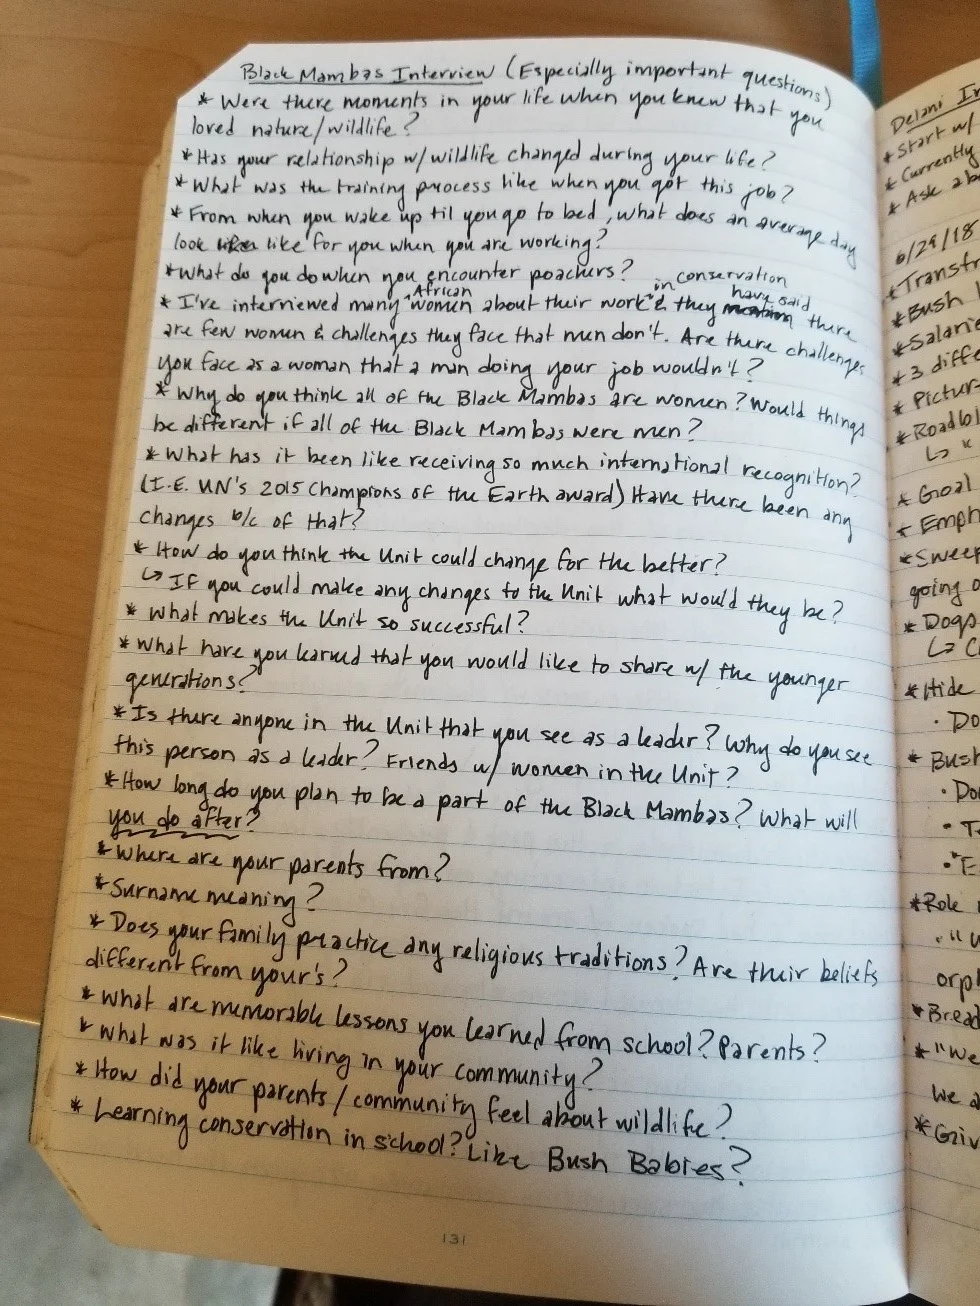 Black Mambas Interview (Especially important questions)
* Were there moments in your life when you knew that you
loved nature/wildlife?
* Has your relationship w/ wildlife changed during your life?
* What was the training process like when you got this job?
* From when you wake up til you go to bed, what does an average day
look like for you when you are working?
* What do you do when you encounter poachers?
* I've interviewed many African women about their work in conservation & they have said there
are few women & challenges they face that men don't. Are there challenges
you face as a woman that a man doing your job wouldn't?
* Why do you think all of the Black Mambas are women? Would things
be different if all of the Black Mambas were men?
* What has it been like receiving so much international recognition?
(I.E. UN's 2015 Champions of the Earth award) Have there been any
changes b/c of that?
* How do you think the Unit could change for the better?
↳ If you could make any changes to the Unit what would they be?
* What makes the Unit so successful?
* What have you learned that you would like to share w/ the younger
generations?
* Is there anyone in the Unit that you see as a leader? Why do you see
this person as a leader? Friends w/ women in the Unit?
* How long do you plan to be a part of the Black Mambas? What will
you do after?
* Where are your parents from?
* Surname meaning?
* Does your family practice any religious traditions? Are their beliefs
different from your's?
* What are memorable lessons you learned from school? Parents?
* What was it like living in your community?
* How did your parents/community feel about wildlife?
* Learning conservation in school? Like Bush Babies?
131
Delani
* Start w/
* Currently
* Ask
6/29/18
* Bush
* 3
* Goal
going
* Dogs
* Hide
* Role
We